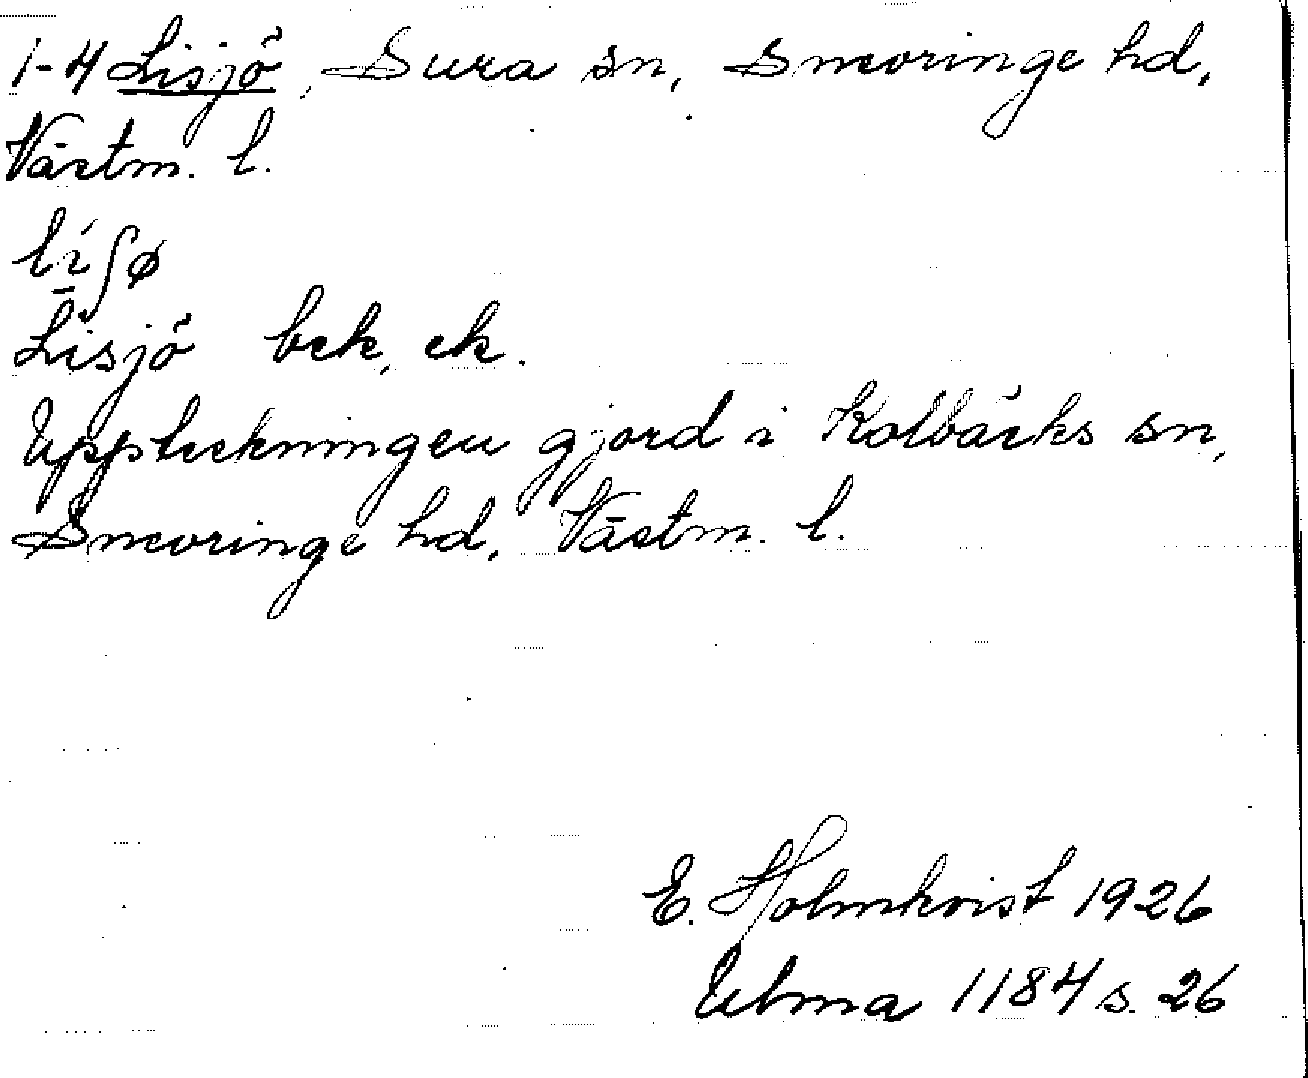 1-4 Lisjö, Sura sn, Snevringe hd,
Västm. l.
lı̄́ʃø
Lisjö bek, ek.
Uppteckningen gjord i Kolbäcks sn,
Snevringe hd, Västm. l.
E. Holmkvist 1926
Ulma 1184 s. 26